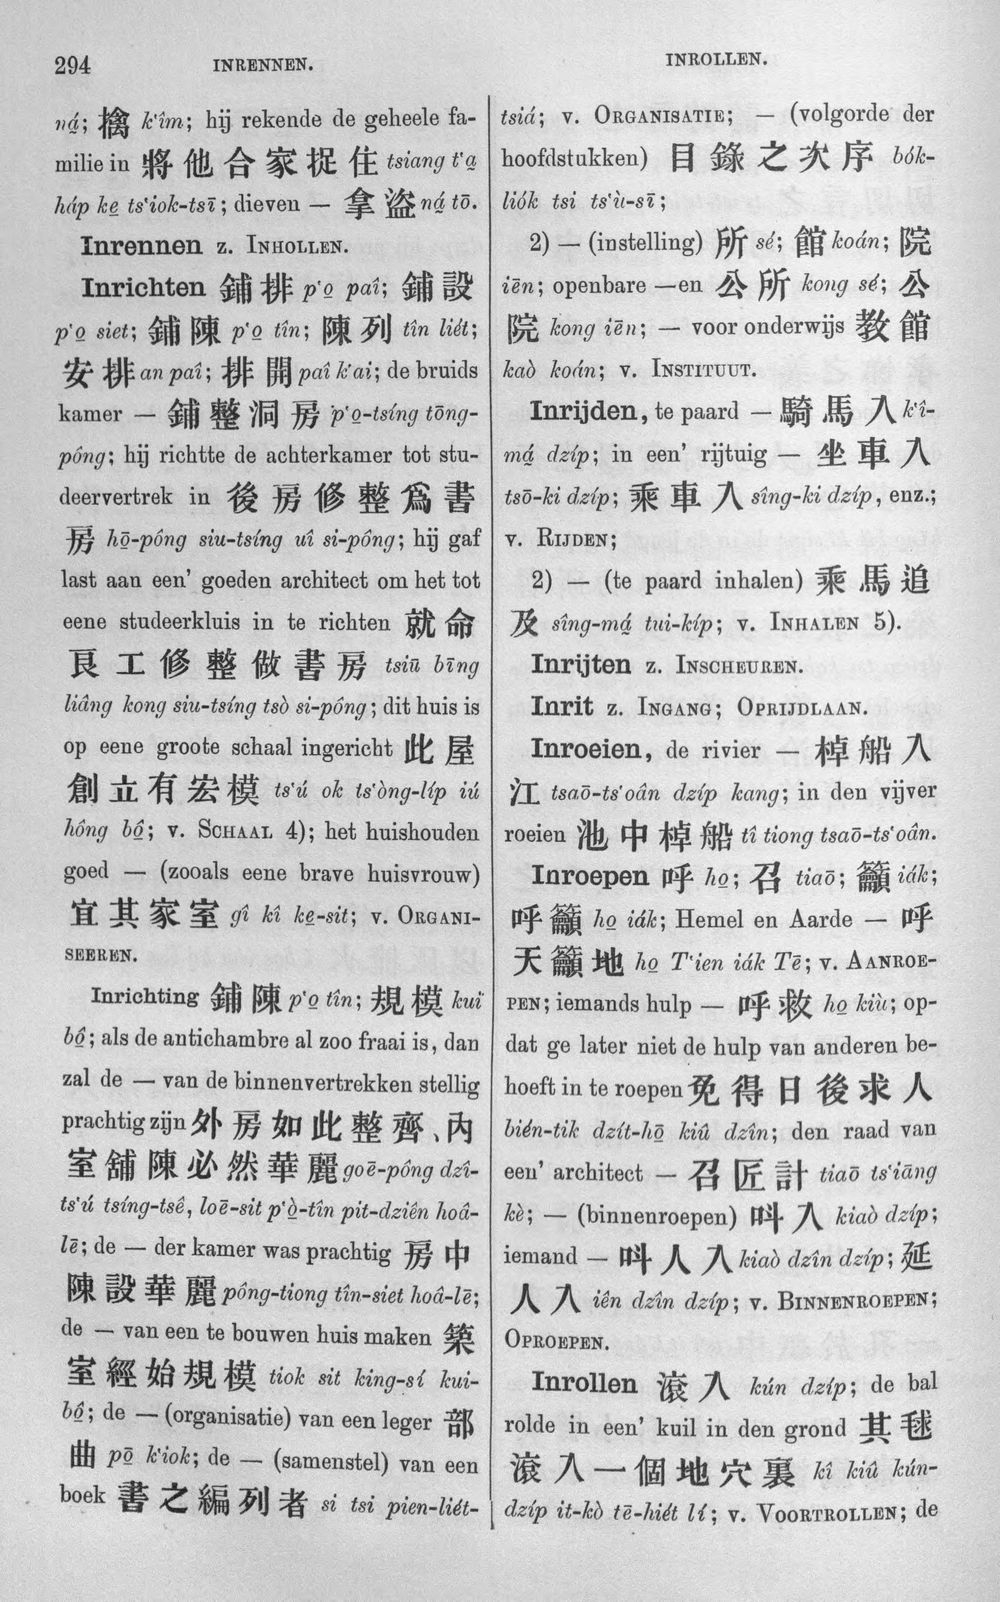 294 INRENNEN.
INROLLEN.
ná̤; 擒 k'îm; hij rekende de geheele fa-
milie in 將他合家捉住 tsiang t'a̤
háp ke̤ ts'iok-tsī; dieven — 拿盜 ná̤ tō.
Inrennen z. INHOLLEN.
Inrichten 鋪排 p'o̤ paî; 鋪設
p'o̤ siet; 鋪陳 p'o̤ tîn; 陳列 tîn liét;
安排 an paî; 排開 paî k'ai; de bruids
kamer — 鋪整洞房 p'o̤-tsíng tōng-
pông; hij richtte de achterkamer tot stu-
deervertrek in 後房修整爲書
房 hō̤-pông siu-tsíng uî si-pông; hij gaf
last aan een' goeden architect om het tot
eene studeerkluis in te richten 就命
良工修整做書房 tsiū bīng
liâng kong siu-tsíng tsò si-pông; dit huis is
op eene groote schaal ingericht 此屋
創立有宏模 ts'ú ok ts'òng-líp iú
hông bô̤; v. SCHAAL 4); het huishouden
goed — (zooals eene brave huisvrouw)
宜其家室 gî kî ke̤-sit; v. ORGANI-
SEEREN.
Inrichting 鋪陳 p'o̤ tîn; 規模 kui
bô̤; als de antichambre al zoo fraai is, dan
zal de — van de binnenvertrekken stellig
prachtig zijn 外房如此整齊、內
室鋪陳必然華麗 goē-pông dzî-
ts'ú tsíng-tsê, loē-sit p'ò̤-tîn pit-dziên hoâ-
lē; de — der kamer was prachtig 房中
陳設華麗 pông-tiong tîn-siet hoâ-lē;
de — van een te bouwen huis maken 築
室經始規模 tiok sit king-sí kui-
bô̤; de — (organisatie) van een leger 部
曲 pō̤ k'iok; de — (samenstel) van een
boek 書之編列者 si tsi pien-liét-
tsiá; v. ORGANISATIE; — (volgorde der
hoofdstukken) 目錄之次序 bók-
liók tsi ts'ù-sī;
2) — (instelling) 所 sé; 館 koán; 院
iēn; openbare —en 公所 kong sé; 公
院 kong iēn; — voor onderwijs 教館
kaò koán; v. INSTITUUT.
Inrijden, te paard — 騎馬入 k'î-
má̤ dzíp; in een' rijtuig — 坐車入
tsō-ki dzíp; 乘車入 sîng-ki dzíp, enz.;
v. RIJDEN;
2) — (te paard inhalen) 乘馬追
及 sîng-má̤ tui-kíp; v. INHALEN 5).
Inrijten z. INSCHEUREN.
Inrit z. INGANG; OPRIJDLAAN.
Inroeien, de rivier — 棹船入
江 tsaō-ts'oân dzíp kang; in den vijver
roeien 池中棹船 tî tiong tsaō-ts'oân.
Inroepen 呼 ho̤; 召 tiaō; 籲 iák;
呼籲 ho̤ iák; Hemel en Aarde — 呼
天籲地 ho̤ T'ien iák Tē; v. AANROE-
PEN; iemands hulp — 呼救 ho̤ kiù; op-
dat ge later niet de hulp van anderen be-
hoeft in te roepen 免得日後求人
bién-tik dzít-hō̤ kiû dzîn; den raad van
een' architect — 召匠計 tiaō ts'iāng
kè; — (binnenroepen) 呌入 kiaò dzíp;
iemand — 呌人入 kiaò dzîn dzíp; 延
人入 iên dzîn dzíp; v. BINNENROEPEN;
OPROEPEN.
Inrollen 滾入 kún dzíp; de bal
rolde in een' kuil in den grond 其毬
滾入一個地穴裏 kî kiû kún-
dzíp it-kò tē-hiét lí; v. VOORTROLLEN; de